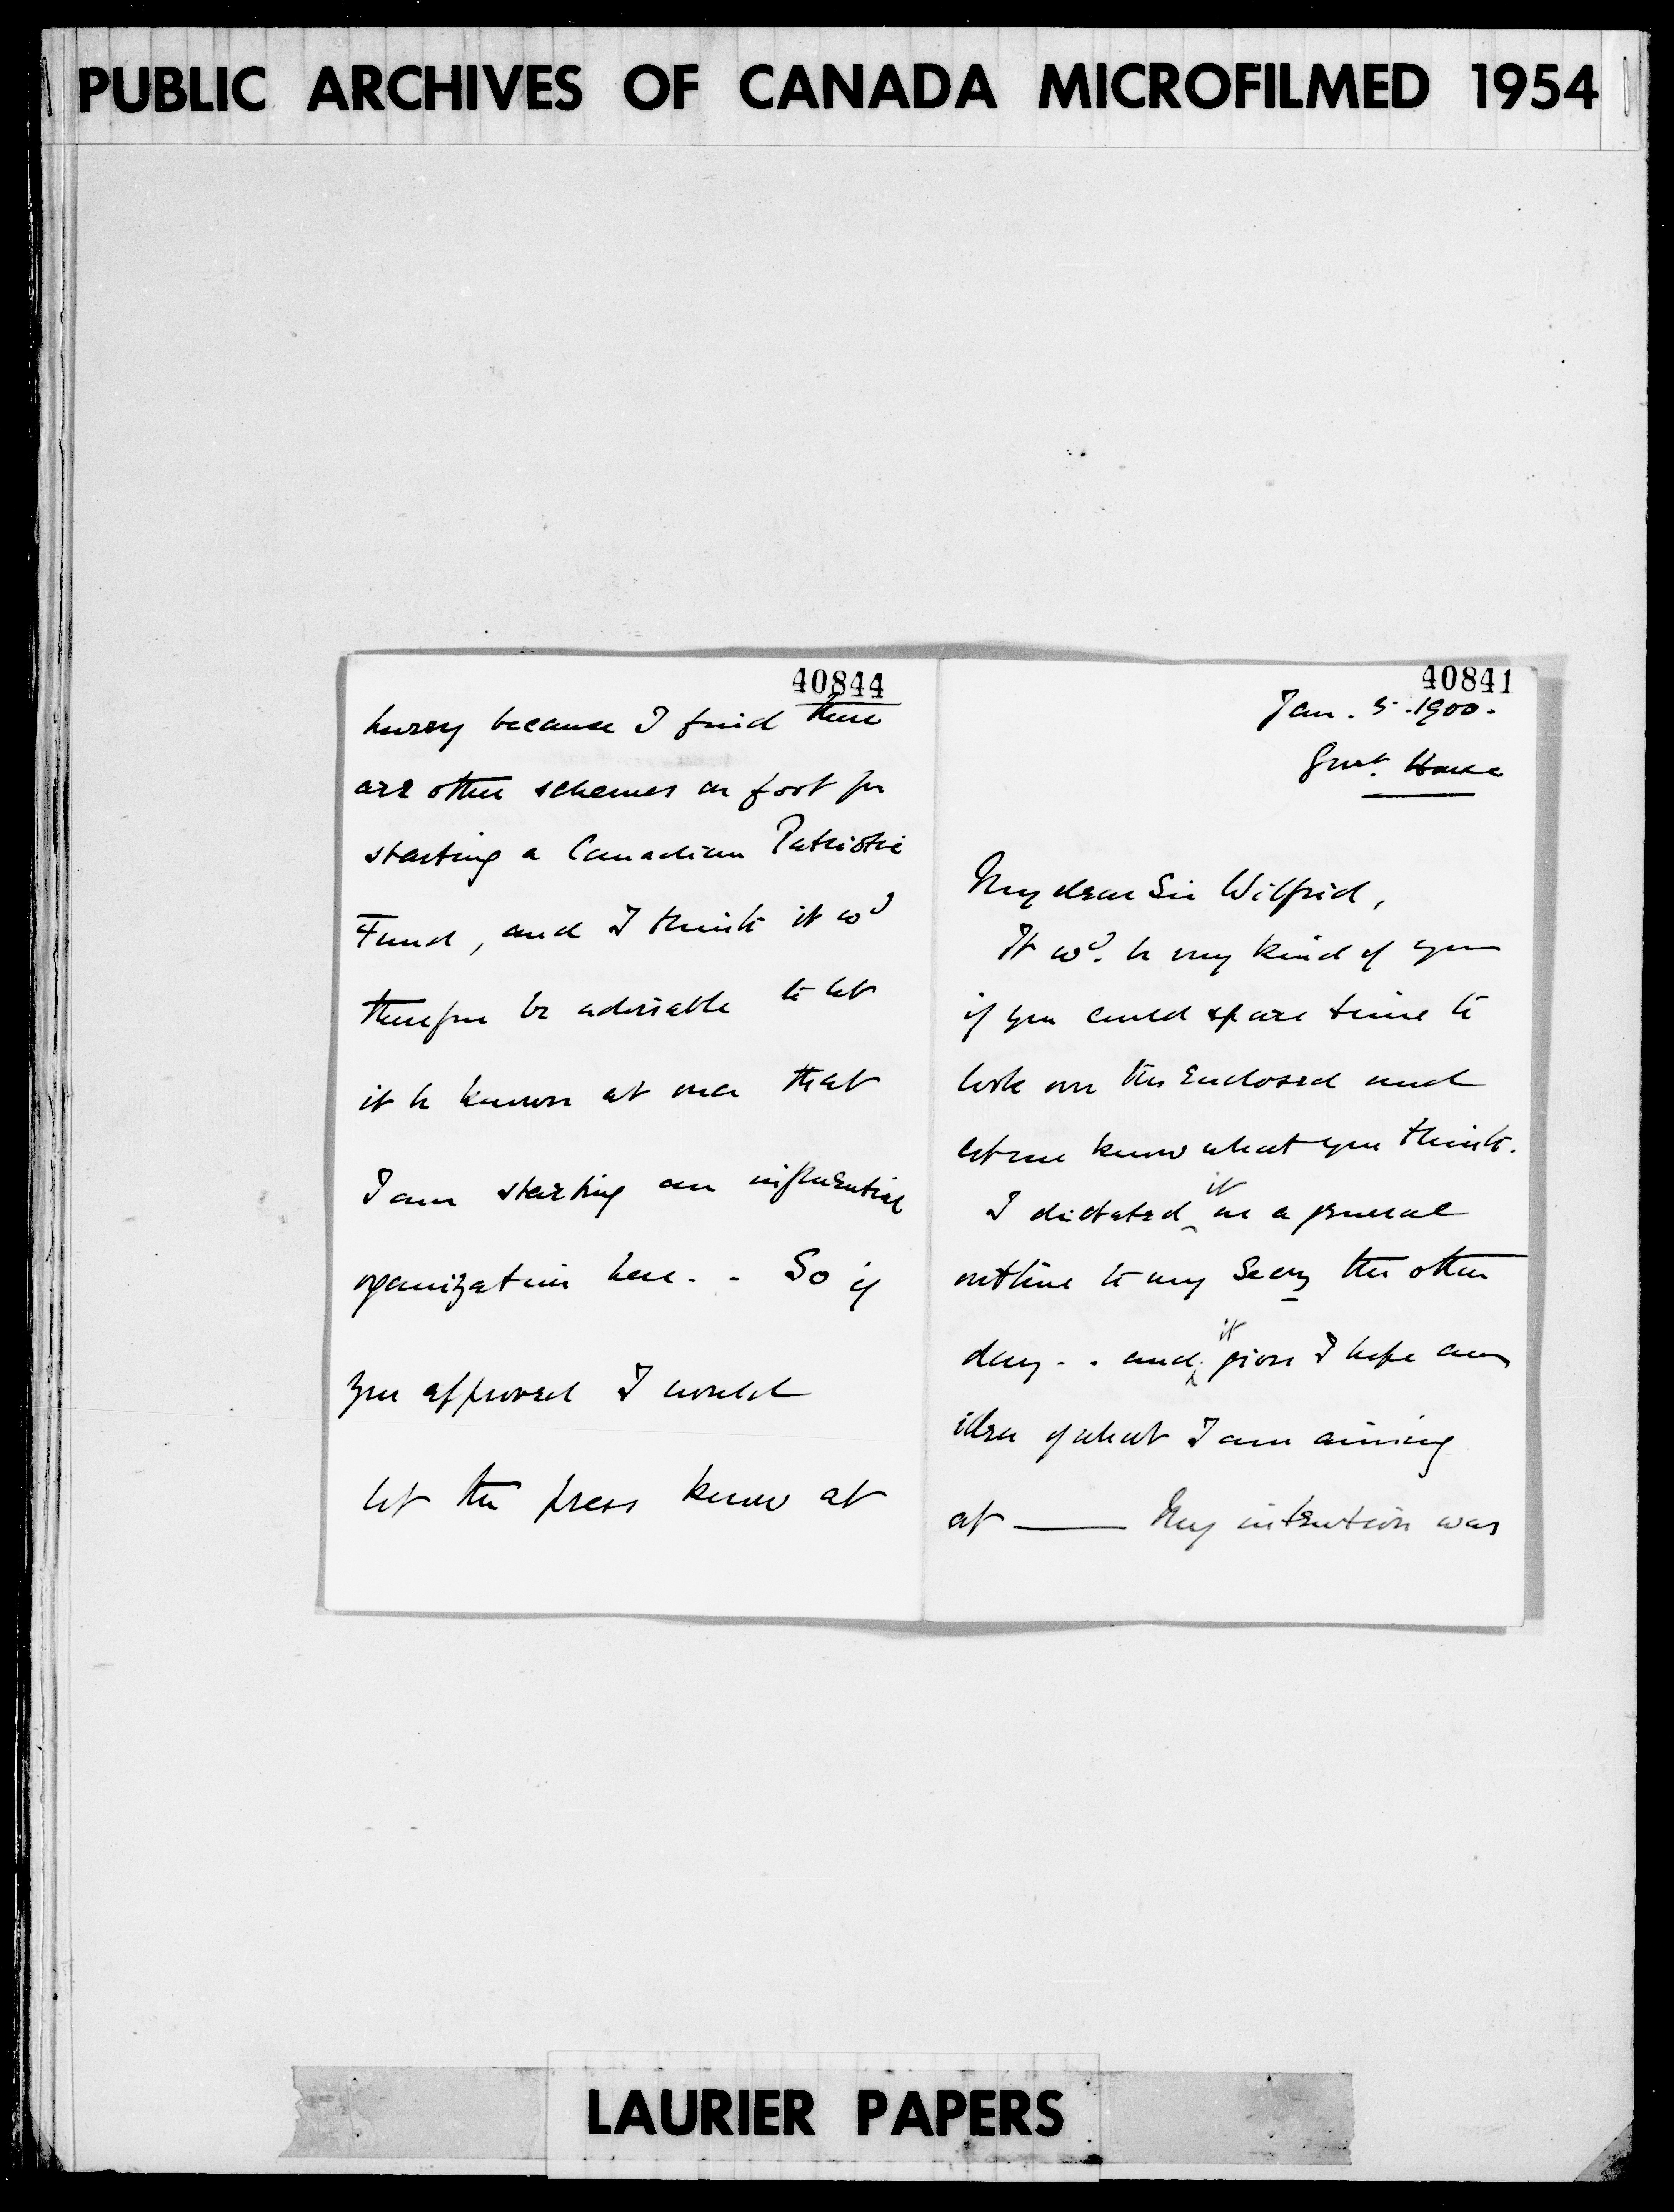 PUBLIC ARCHIVES OF CANADA MICROFILMED 1954
40844
hurry because I find there
are other schemes on foot for
starting a Canadian Patriotic
Fund, and I think it wd
therefore be advisable to let
it be known at once that
I am starting an influential
organization here. . So if
you approved I would
let the press know at
40841
Jan. 5. 1900.
Govt. House
My dear Sir Wilfrid,
It wd. be very kind of you
if you could spare time to
look over the enclosed and
let me know what you think.
I dictated it as a general
outline to my Secy the other
day. . and it gives I hope an
idea of what I am aiming
at — My intention was
LAURIER PAPERS